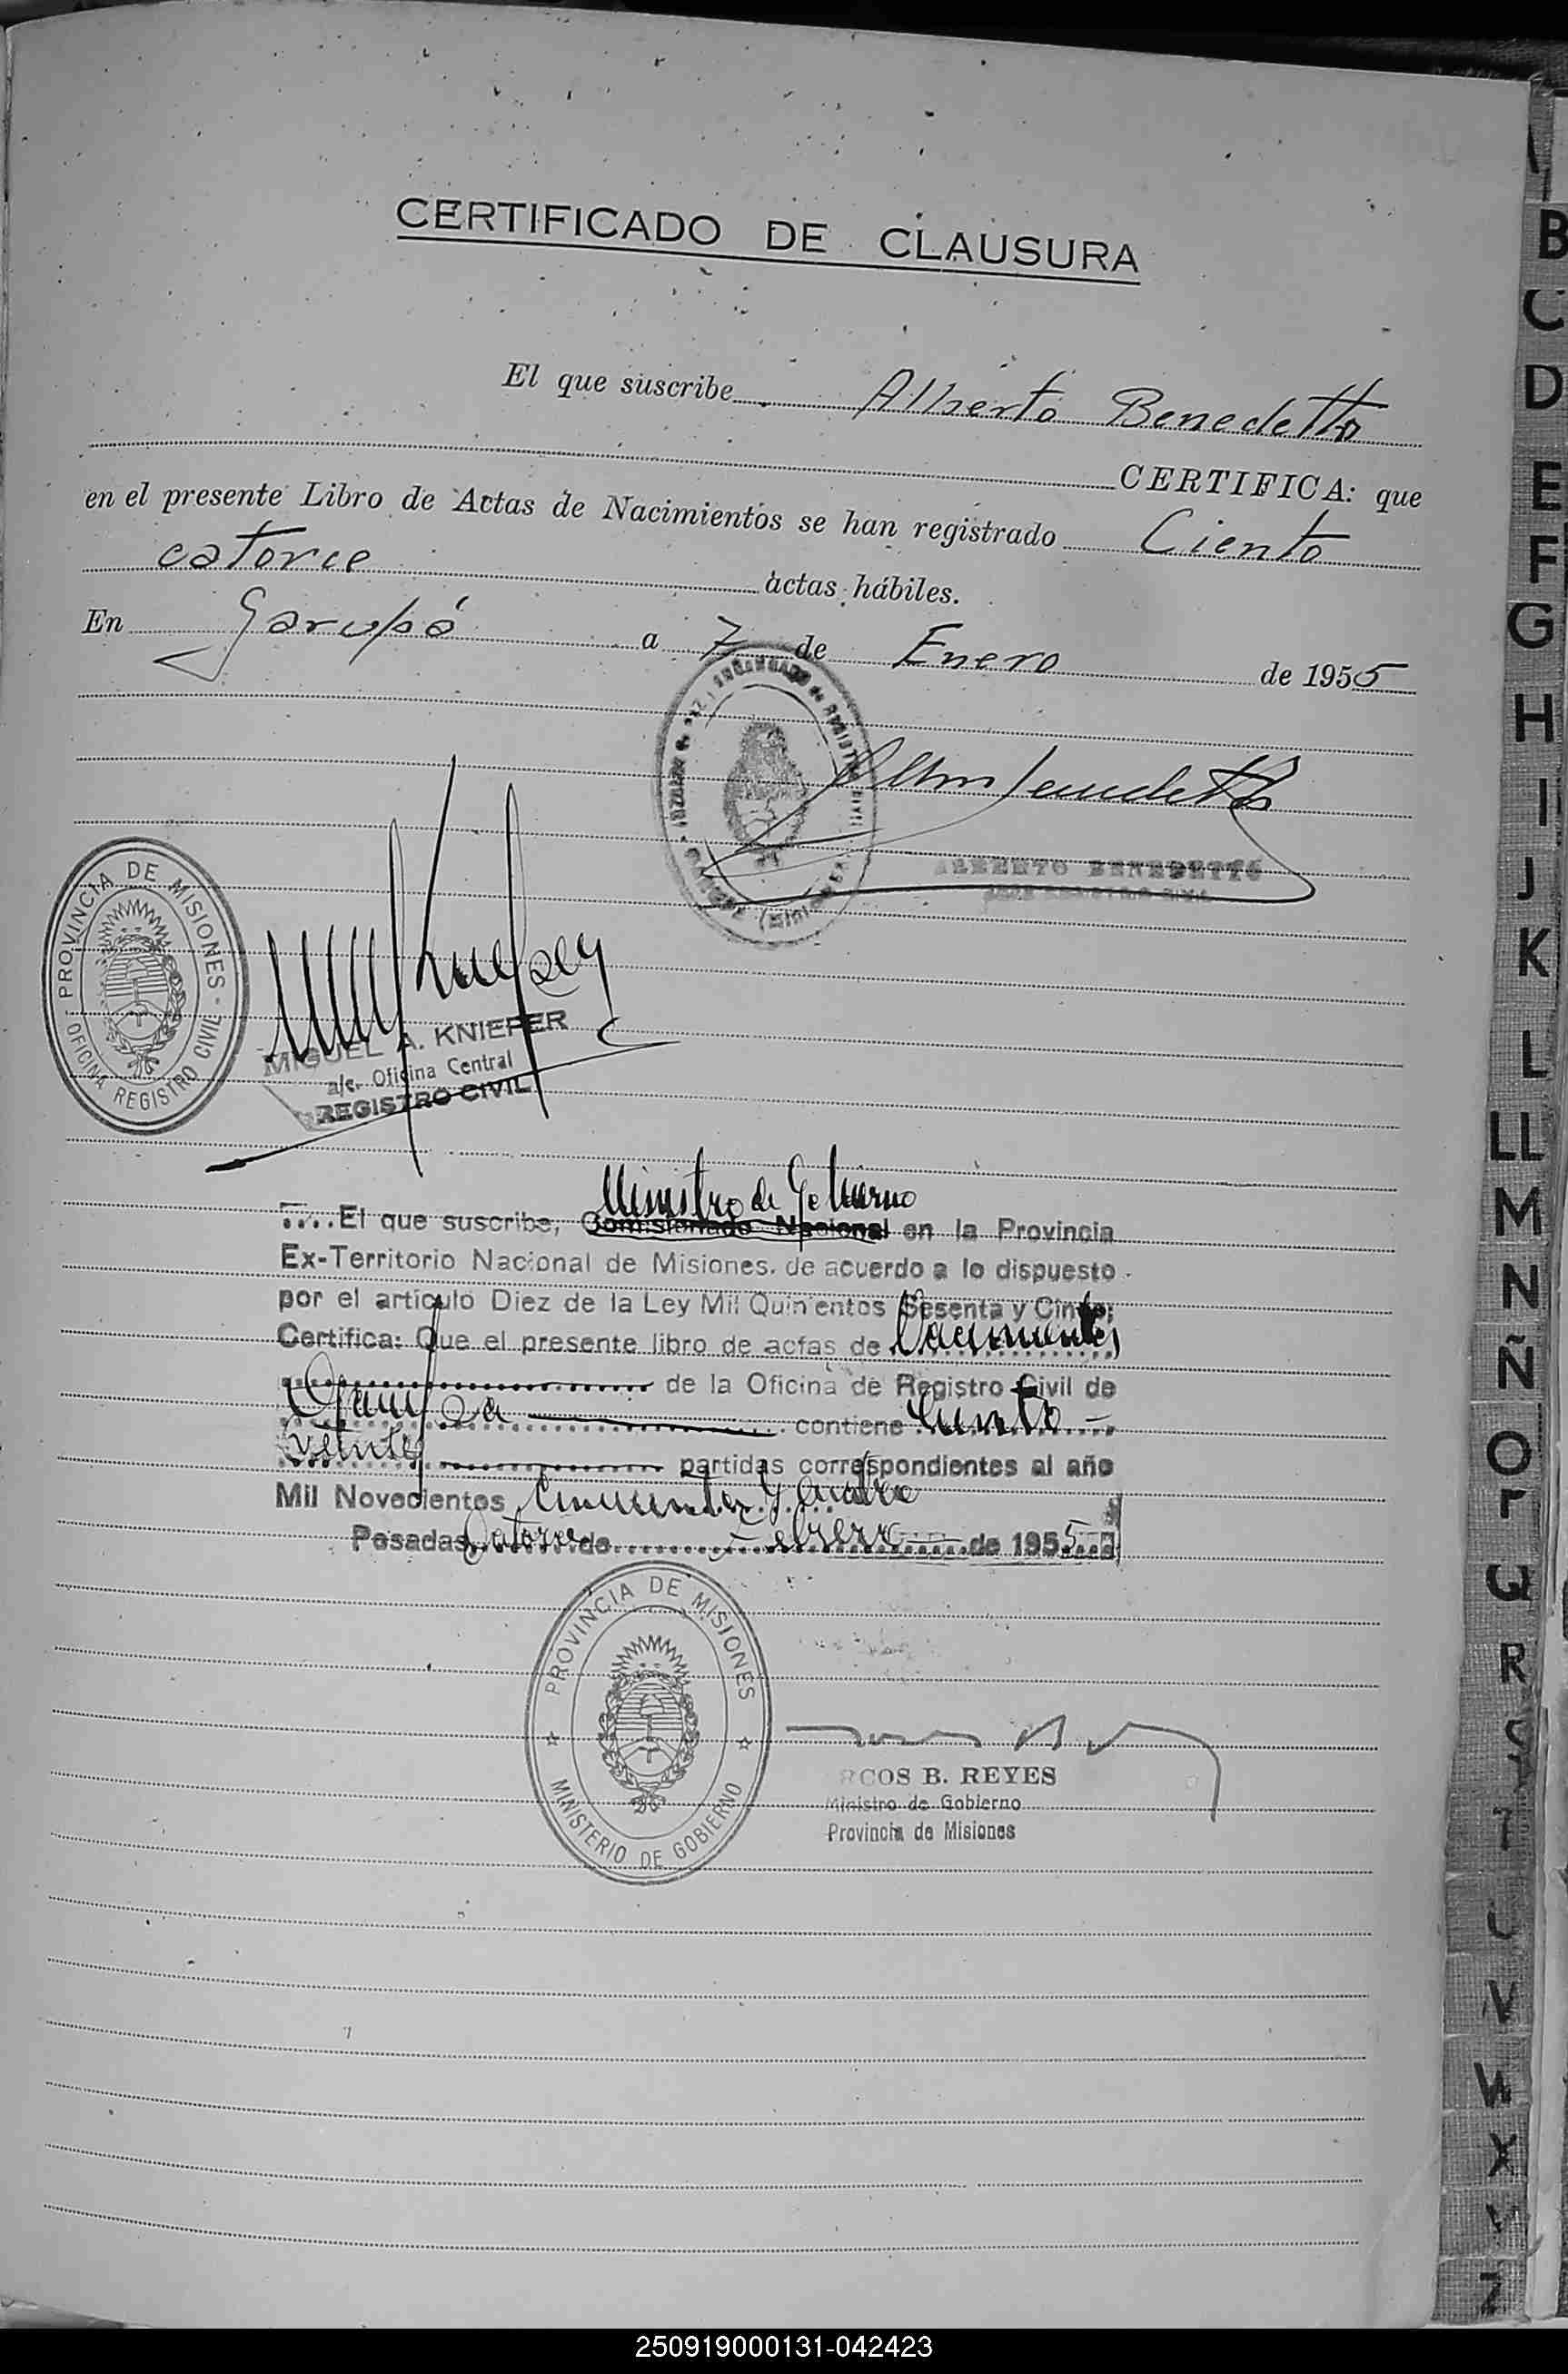 CERTIFICADO DE CLAUSURA
El que suscribe Alberto Benedetto
CERTIFICA: que
en el presente Libro de Actas de Nacimientos se han registrado Ciento
catorce actas hábiles.
En Garupá a 7 de Enero de 1955
ALBERTO BENEDETTO
PROVINCIA DE MISIONES - OFICINA REGISTRO CIVIL
MIGUEL A. KNIEFER
a/c. Oficina Central
REGISTRO CIVIL
Ministro de Gobierno
El que suscribe, Comisionado Nacional en la Provincia
Ex-Territorio Nacional de Misiones. de acuerdo a lo dispuesto
por el articulo Diez de la Ley Mil Quinientos Sesenta y Cinco;
Certifica: Que el presente libro de actas de Nacimientos
de la Oficina de Registro Civil de
Garupá contiene Ciento
veinte partidas correspondientes al año
Mil Novecientos Cincuenta y Cuatro
Posadas, Catorce de Febrero de 1955
PROVINCIA DE MISIONES
MINISTERIO DE GOBIERNO
RCOS B. REYES
Ministro de Gobierno
Provincia de Misiones
B
C
D
E
F
G
H
I
J
K
L
LL
M
N
Ñ
O
P
Q
R
S
T
U
V
W
X
Y
Z
250919000131-042423